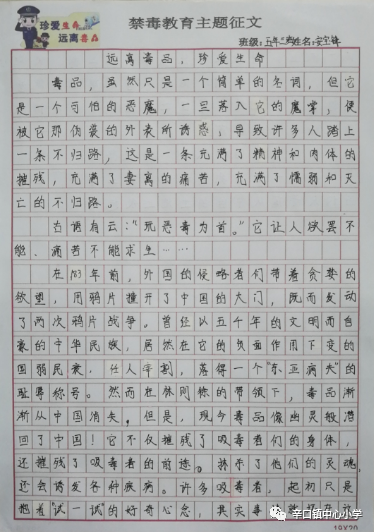 珍爱生命
远离毒品
禁毒教育主题征文
班级：五年 班 姓名：安宇锋
远离毒品，珍爱生命
毒品，虽然只是一个简单的名词，但它
是一个可怕的恶魔，一旦落入它的魔掌，便
被它那伪装的外表所诱惑，导致许多人踏上
一条不归路，这是一条充满了精神和肉体的
摧残，充满了妻离的痛苦，充满了懦弱和灭
亡的不归路。
古语有云：“玩恶毒为首。”它让人欲罢不
能、痛苦不能求生……
在183年前，外国的侵略者们带着贪婪的
欲望，用鸦片撞开了中国的大门，既而发动
了两次鸦片战争。曾经以五千年的文明而自
豪的中华民族，居然在它的负面作用下变的
国弱民衰，任人宰割，落得一个“东亚病夫”的
耻辱称号。然而在林则徐的带领下，毒品渐
渐从中国消失，但是，现今毒品像幽灵般潜
回了中国！它不仅摧残了吸毒者们的身体，
还摧残了吸毒者的前途，抹杀了他们的灵魂，
还会诱发各种疾病。许多吸毒者，起初只是
抱着“试一试”的好奇心态，其实事
辛口镇中心小学
19X20